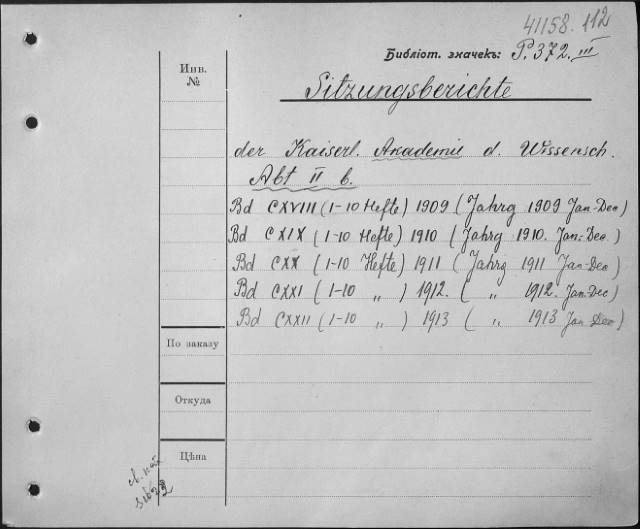 41158.112
Библіот. значекъ: P.372.III
Инв. №
Sitzungsberichte
der Kaiserl. Akademie d. Wissensch.
Abt II b.
Bd CXVIII (1-10 Hefte) 1909 (Jahrg 1909 Jan-Dec)
Bd CXIX (1-10 Hefte) 1910 (Jahrg 1910. Jan.-Dec.)
Bd CXX (1-10 Hefte) 1911 (Jahrg 1911 Jan-Dec)
Bd CXXI (1-10 „ ) 1912. ( „ 1912. Jan-Dec)
Bd CXXII (1-10 „ ) 1913 ( „ 1913 Jan Dec)
По заказу
Откуда
Цѣна